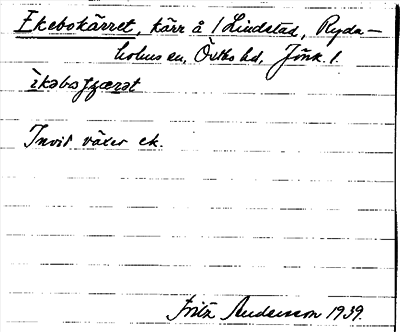 Ekebokärret, kärr å 1 Lindstad, Ryda-
holms sn, Östbo hd, Jönk. l.
ìkəboʃɟærət
Invid växer ek.
Fritz Andersson 1939.